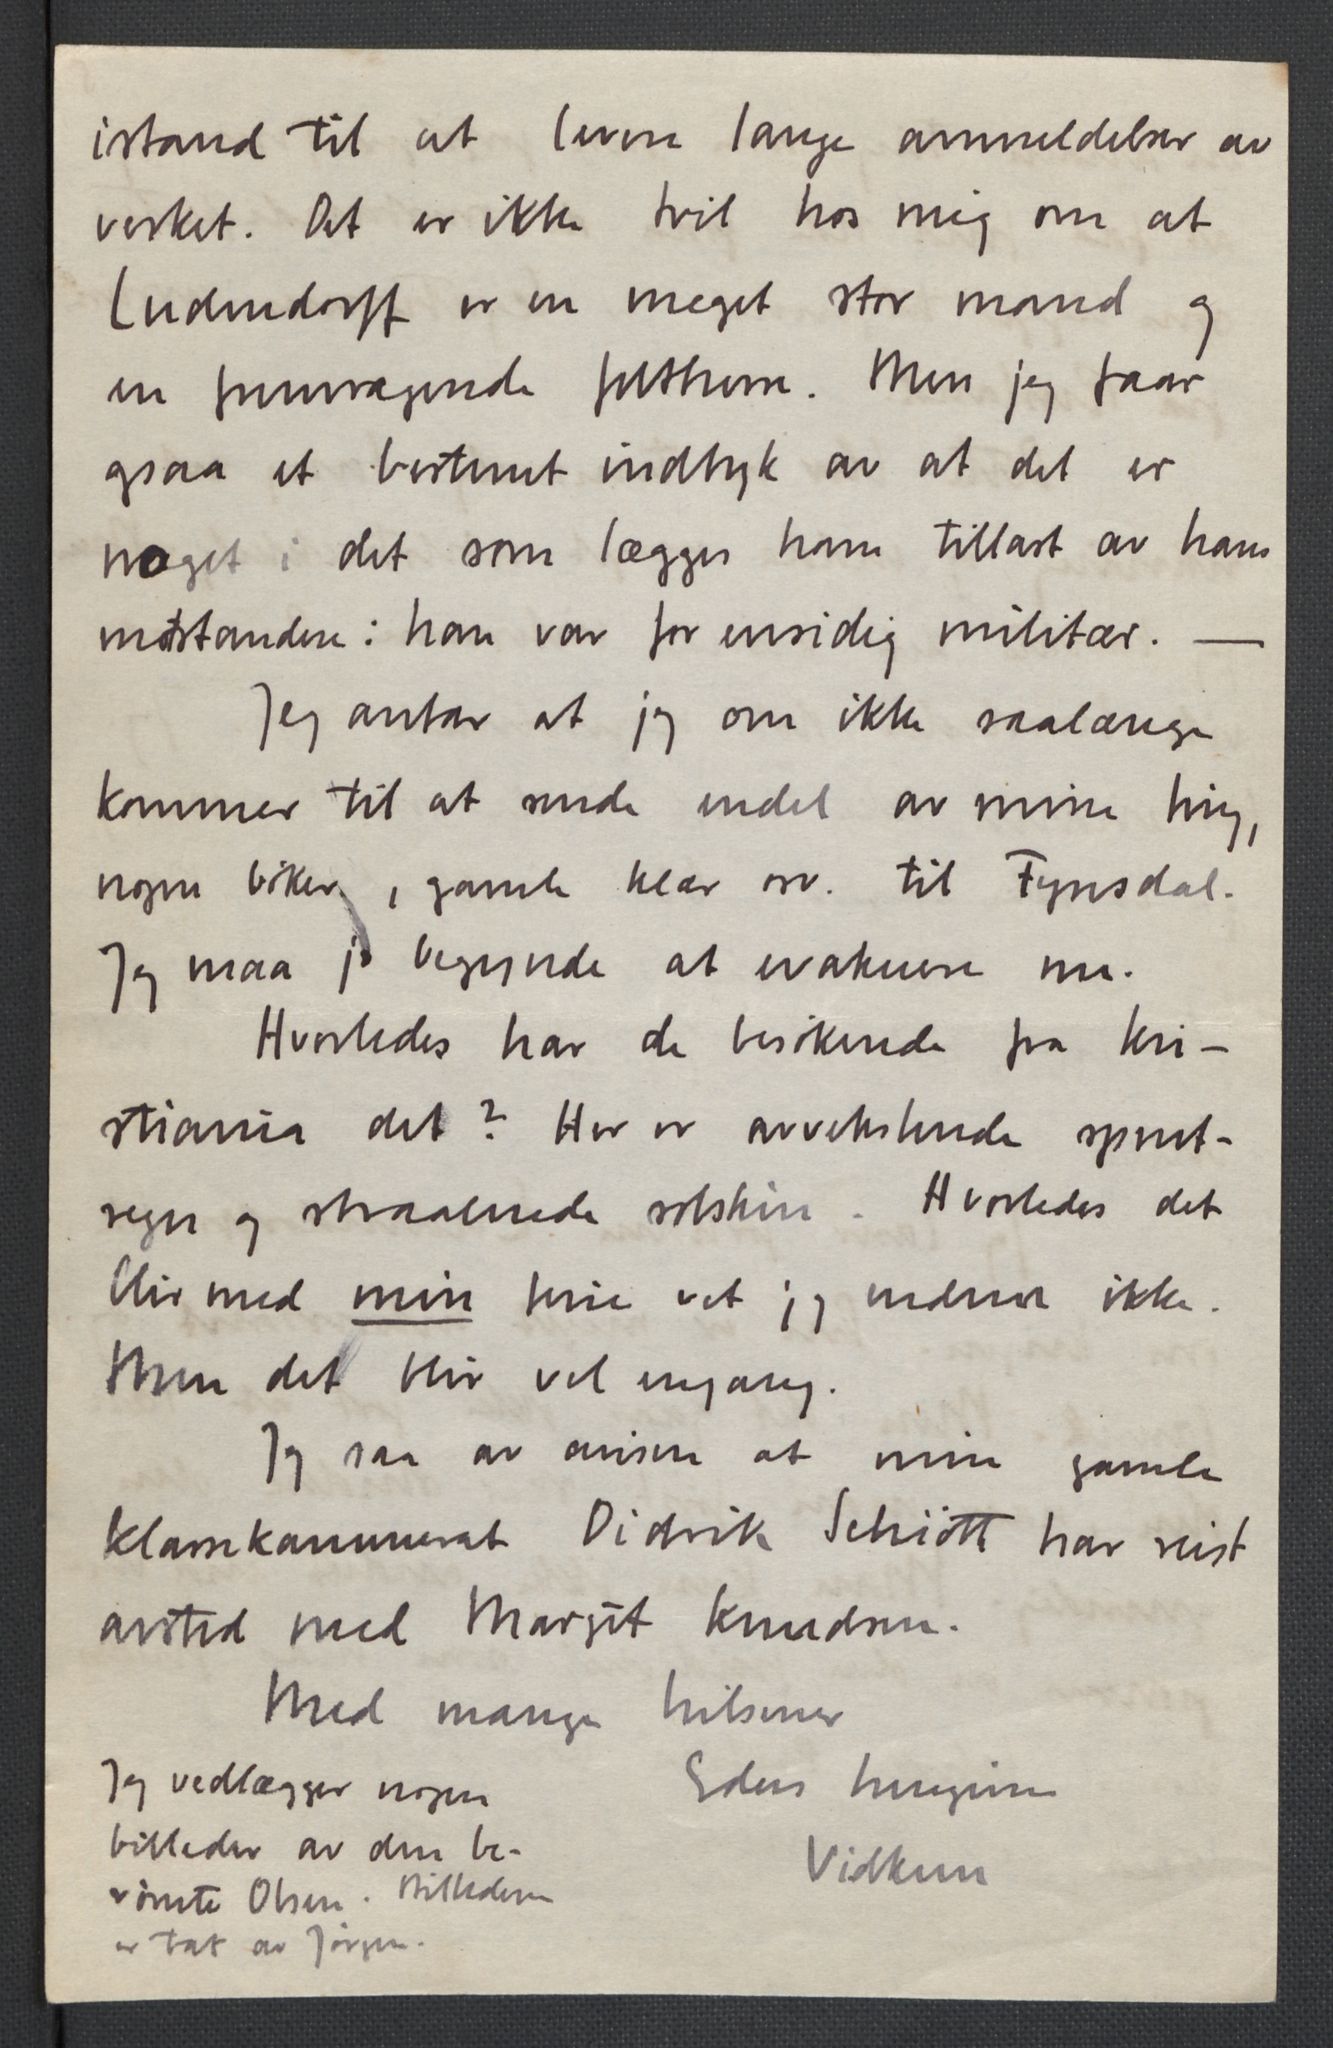 istand til at levere lange anmeldelser av
verket. Det er ikke tvil hos mig om at
Ludendorff er en meget stor mand og
en fremragende feltherre. Men jeg faar
ogsaa et bestemt indtryk av at det er
noget i det som lægges ham tillast av hans
motstandere: han var for ensidig militær. —
Jeg antar at jeg om ikke saalænge
kommer til at sende endel av mine ting,
nogen böker, gamle klær osv. til Fyresdal.
Jeg maa jo begynde at evakuere nu.
Hvorledes har de besökende fra Kri-
stiania det? Her er avvekslende sprut-
regn og straalende solskin. Hvorledes det
blir med min ferie vet jeg endnu ikke.
Men det blir vel engang.
Jeg saa av avisene at min gamle
klassekammerat Didrik Schiött har reist
avsted med Margit Knudsen.
Med mange hilsener
Eders hengivne
Vidkun
Jeg vedlægger nogen
billeder av den be-
römte Olsen. Billedene
er tat av Jörgen.